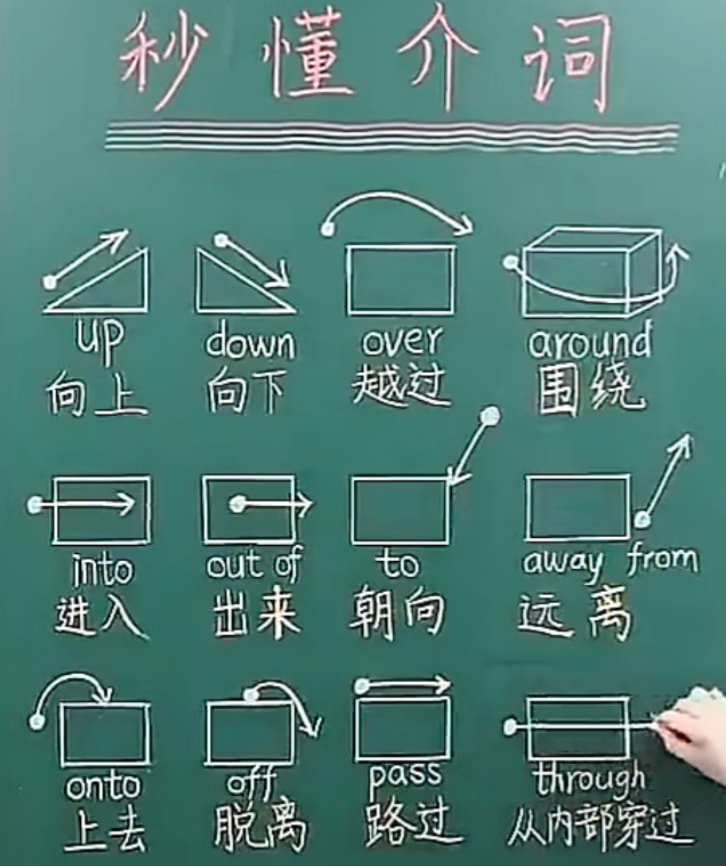 秒懂介词
up down over around
向上 向下 越过 围绕
into out of to away from
进入 出来 朝向 远离
onto off pass through
上去 脱离 路过 从内部穿过